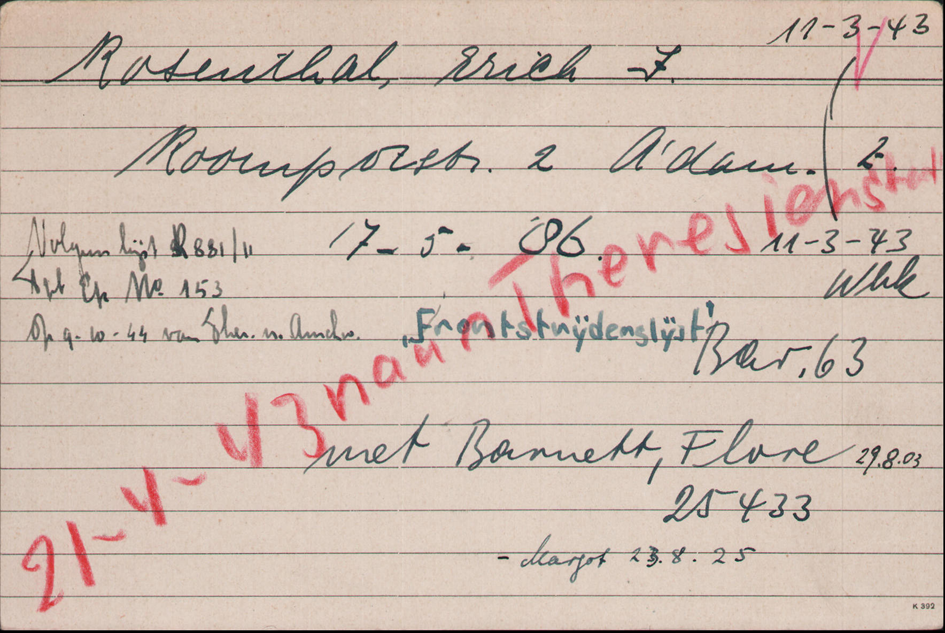 11-3-43
Rosenthal, Erich J.
Roompotstr. 2 A'dam. 2.
Volgens lijst R 881/11 17-5-'86. 11-3-43
Wbk
Ep No 153
Op 9-10-44 van Ther. n. Auschw.
"Frontstrijderslijst"
Bar. 63
21-4-43 naar Theresienstadt
met Barnett, Flore 29.8.03
25433
- Margot 23.8.25
K 392